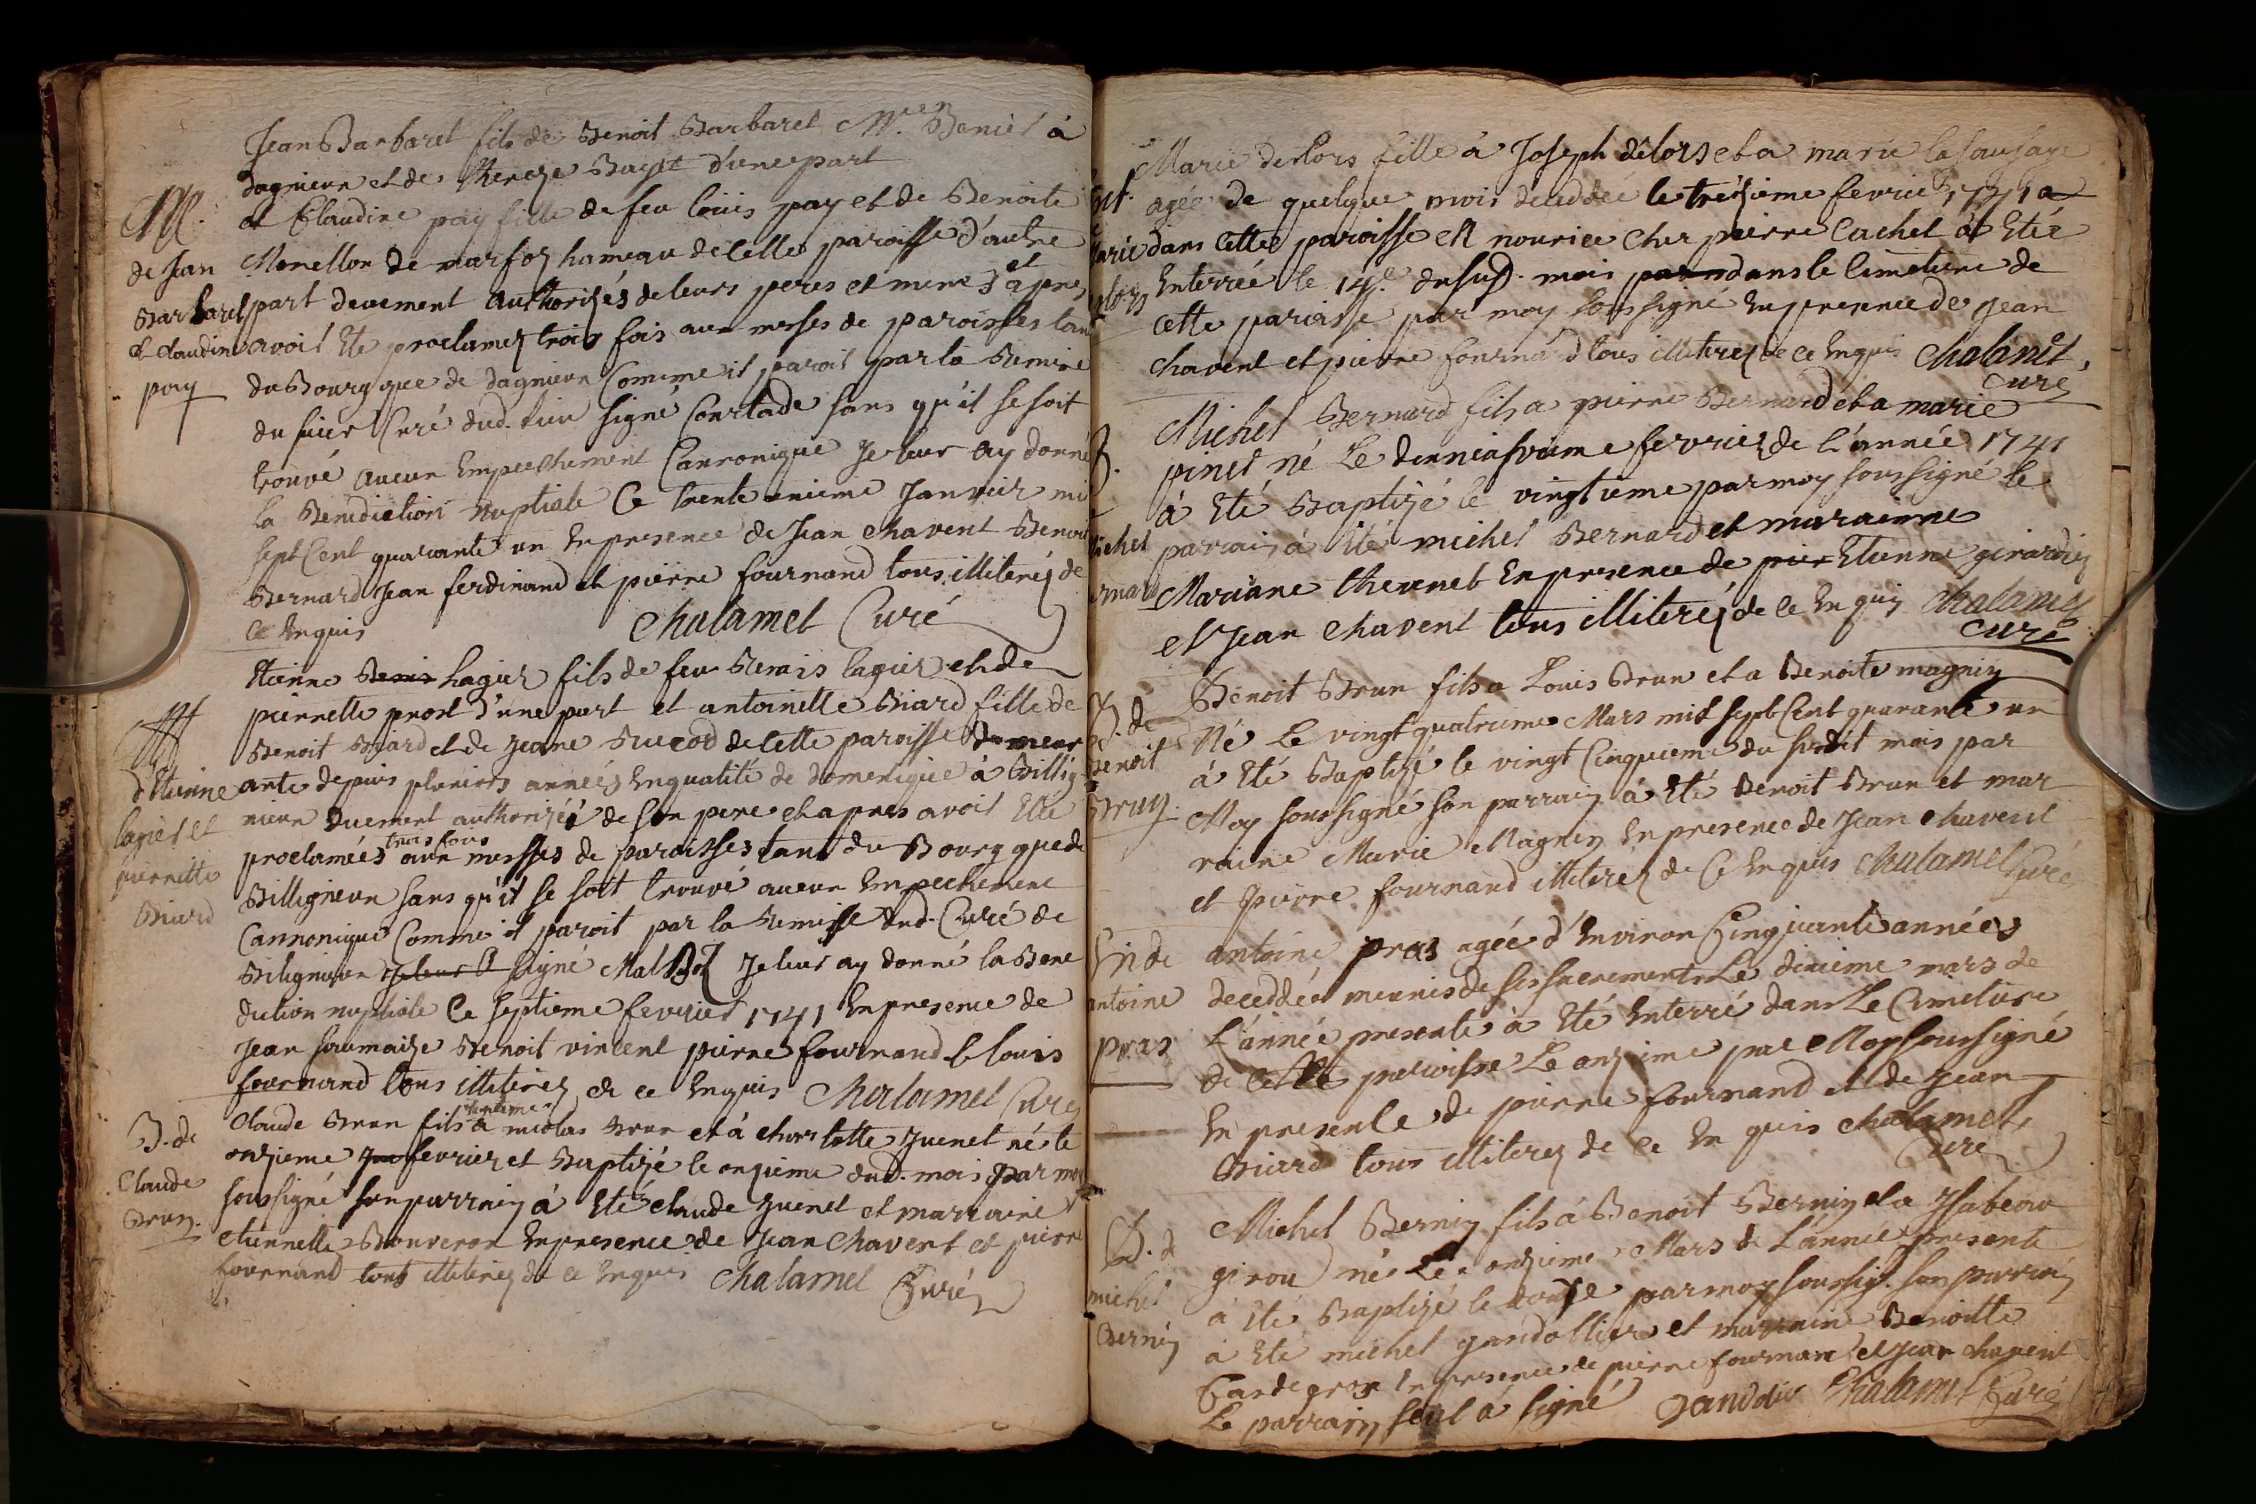 Jean Barbaret fils de Benoit Barbaret Mre
dagnieux et de d'une part
M. et Claudine pay fille de feu louis pay et de Benoite
de Jean Monellon de marfoz hameau de cette paroisse d'autre
Barbaret part deuement authorizés de leurs peres et mere et apres
et Claudine avoir Eté proclamez trois fois aux messes de paroisses tant
pay du Bourg que de dagnieux Comme il paroit par la Remise
du sieur Curé dud. lieu signé Courtade sans qu'il se soit
trouvé aucun Empechement Cannonique Je leur ay donné
la Benediction nuptiale Ce trente unieme Janvier mil
sept Cent quarante un En presence de Jean Chavent Benoit
Bernard Jean ferdinand et pierre fournand tous illiterez de
ce Enquis Chalamel Curé
Etienne lagier fils de feu lagier et de
pierrette prost d'une part et antoinette Biard fille de
M Benoit Biard et de Jeane de cette paroisse demeur
d'Etienne ante depuis plusieurs années En qualité de domestique à Billig
lagier et nieux duement authorizéé de son pere et apres avoir Eté
pierrette proclamées trois fois aux messes de paroisses tant du Bourg que de
Biard Billignieux sans qu'il se soit trouvé aucun Empechement
Cannonique Comme il paroit par la Remisse dud. Curé de
Bilignieux signé Je leur ay donné la Bene
diction nuptiale Ce septieme fevrier 1741 En presence de
Jean Benoit vincent pierre fournand et louis
fournand tous illiterez de ce Enquis Chalamel Curé
B. de Claude Brun fils à nicolas Brun et à Charlotte Juenet né le
Claude onzieme fevrier et Baptizé le onzieme dud. mois par moy
Brun. soussigné son parrain à Eté claude Juenet et marraine
etiennette Bouveron En presence de Jean Chavent et pierre
fournand tous illiterez de ce Enquis Chalamel Curé
Marie delors fille à Joseph delors et a marie
agée de quelque mois deceddée le treizieme fevrier 1741 a
dans cette paroisse En nourice Chez pierre Cachet à Eté
Enterrée le 14e. du susd. mois dans le Cimetiere de
cette paroisse par moy soussigné En presence de Jean
chavent et pierre fournand tous illiterez de ce Enquis Chalamel
Curé
Michel Bernard fils a pierre Bernard et a marie
B. pinet né Le fevrier de l'année 1741
à Eté Baptizé le vingtieme par moy soussigné le
parrain à Eté michel Bernard et maraine
Mariane thevenet En presence de Etienne girardin
et Jean Chavent tous illiteréz de ce Enquis Chalamel
Curé
B. de Benoit Brun fils a Louis Brun et a Benoite magnin
Benoit Né Le vingt quatrieme Mars mil sept Cent quarante un
Brun. à Eté Baptizé le vingt Cinquieme du susdit mois par
Moy soussigné son parrain à Eté Benoit Brun et mar
raine Marie Magnin En presence de Jean chavent
et pierre fournand illiterez de Ce Enquis Chalamel Curé
En de antoine pras agée d'Environ Cinquante années
antoine deceddée munis de ses sacrements Le dixieme mars de
pras L'année presente à Eté Enterré dans Le Cimetiere
de Cette paroisse Le onzieme par Moy soussigné
En presence de pierre fournand et de Jean
Biard tous illiterez de ce Enquis Chalamel
Curé
B. de Michel Bernin fils à Benoit Bernin et a Isabeau
michel girou né Le onzieme Mars de L'année presente
Bernin à Eté Baptizé le douze par moy soussig. son parrain
à Eté michel et marraine Benoitte
En presence de pierre fournand et Jean chavent
Le parrain seul à signé Chalamel Curé